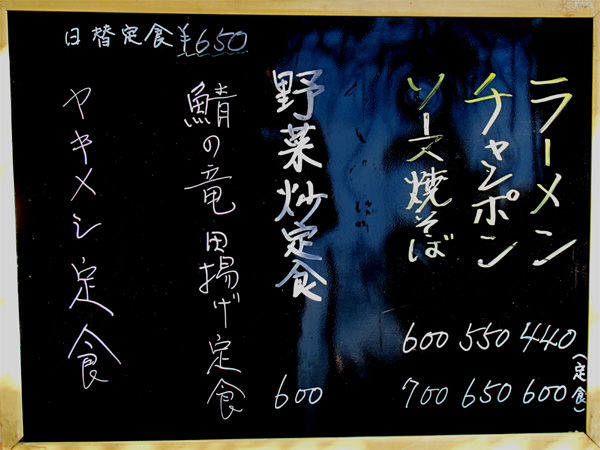 ラーメン 440
(定食) 600
チャンポン 550
650
ソース焼そば 600
700
野菜炒定食 600
日替定食 ¥650
鯖の竜田揚げ定食
ヤキメシ定食